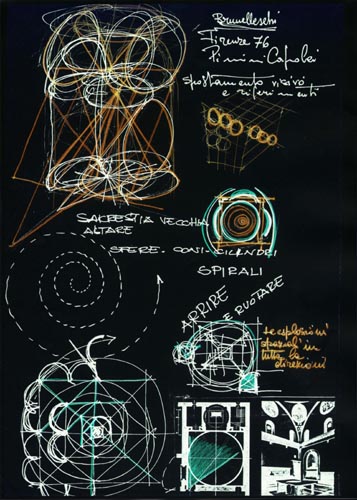 Brunelleschi
Firenze 76
Pironi Capolei
spostamento visivo
e riferimenti
SACRESTIA VECCHIA
ALTARE
SFERE - CONI - CILINDRI
SPIRALI
APRIRE
E RUOTARE
le esplosioni
spaziali in
tutte le
direzioni